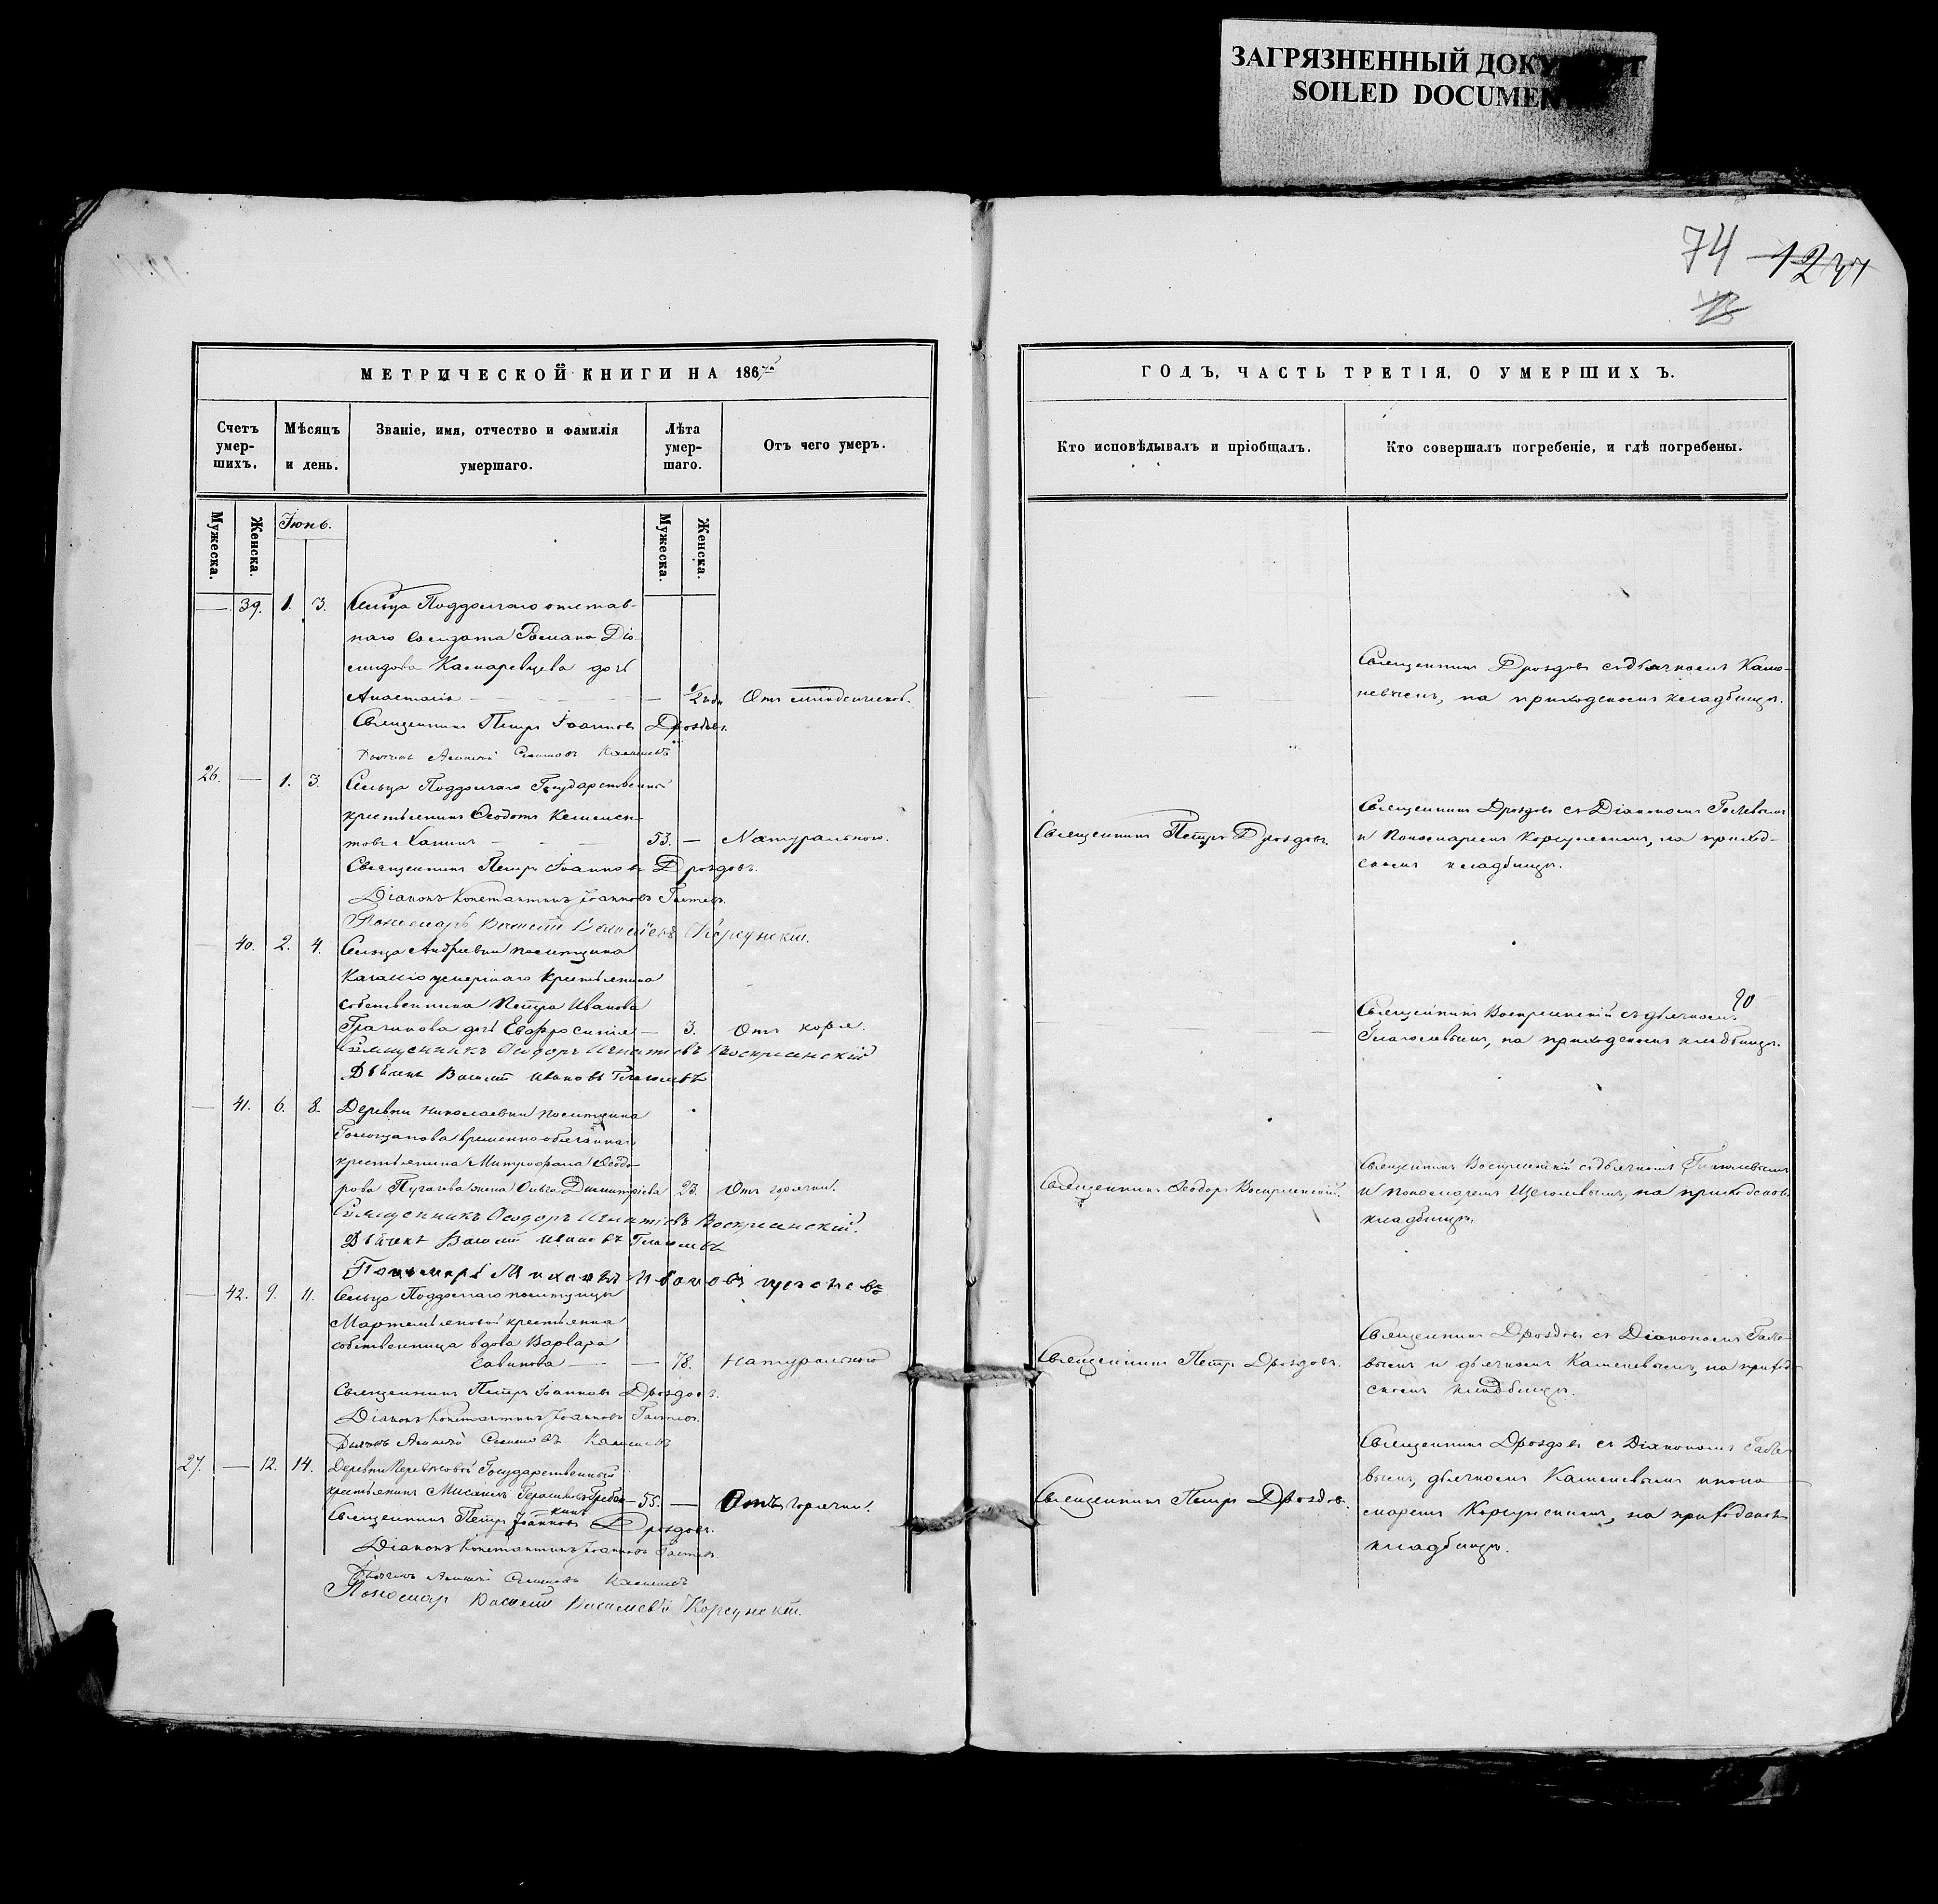 ЗАГРЯЗНЕННЫЙ ДОКУМЕНТ
SOILED DOCUMENT
74
МЕТРИЧЕСКОЙ КНИГИ НА 1867й
Счетъ умер-шихъ.
Мѣсяцъ и день.
Званіе, имя, отчество и фамилія умершаго.
Лѣта умер-шаго.
Отъ чего умеръ.
Мужеска.
Женска.
Іюнь.
Мужеска.
Женска.
39. 1. 3. Сельца Поддолгаго отстав-
наго солдата Романа Діо
мидова дочь
Анастасія 1/2 Отъ младенческой.
Священникъ Петръ Іоанновъ Дроздовъ.
Дьячекъ Алексѣй Каменевъ
26. — 1. 3. Сельца Поддолгаго Государственный
крестьянинъ Ѳеодотъ Клемен-
товъ Ханинъ 53. — Натуральною.
Священникъ Петръ Іоанновъ Дроздовъ.
Діаконъ Константинъ Іоанновъ
Пономарь Василій Васильевъ Корсунскій.
40. 2. 4. Сельца Андреевки помѣщика
умершаго крестьянина
собственника Петра Иванова
дочь Евфросинія — 3. Отъ кори.
Священникъ Ѳеодоръ Игнатіевъ Воскресенскій
Дьячекъ Василій Ивановъ Глаголевъ
— 41. 6. 8. Деревни Николаевки помѣщика
временно-обязаннаго
крестьянина Митрофана Ѳеодо-
рова Пугачева жена Ольга Димитріева 23. Отъ горячки.
Священникъ Ѳеодоръ Игнатіевъ Воскресенскій.
Дьячекъ Василій Ивановъ Глаголевъ
Пономарь Михаилъ Ивановъ Щеголевъ
— 42. 9. 11. Сельца Поддолгаго помѣщицы
Мартемьяновой крестьянка
собственница вдова Варвара
Савинова — — 78. Натурально
Священникъ Петръ Іоанновъ Дроздовъ.
Діаконъ Константинъ Іоанновъ
Дьячекъ Алексѣй Каменевъ
27. — 12. 14. Деревни Государственный
крестьянинъ Герасимовъ Гребен
кинъ 55. — Отъ горячки.
Священникъ Петръ Іоанновъ Дроздовъ.
Діаконъ Константинъ Іоанновъ
Дьячекъ Алексѣй Каменевъ
Пономарь Василій Васильевъ Корсунскій.
ГОДЪ, ЧАСТЬ ТРЕТІЯ, О УМЕРШИХЪ.
Кто исповѣдывалъ и пріобщалъ.
Кто совершалъ погребеніе, и гдѣ погребены.
Священникъ Дроздовъ съ дьячкомъ Каме-
невымъ, на приходскомъ кладбищѣ.
Священникъ Петръ Дроздовъ.
Священникъ Дроздовъ съ Діакономъ
и Пономаремъ Корсунскимъ, на приход-
скомъ кладбищѣ.
Священникъ Воскресенскій съ дьячкомъ
Глаголевымъ, на приходскомъ кладбищѣ.
Священникъ Ѳеодоръ Воскресенскій.
Священникъ Воскресенскій съ дьячкомъ Глаголевымъ
и пономаремъ Щеголевымъ, на приходскомъ
кладбищѣ.
Священникъ Петръ Дроздовъ.
Священникъ Дроздовъ съ Діакономъ
и дьячкомъ Каменевымъ, на приход
скомъ кладбищѣ.
Священникъ Петръ Дроздовъ.
Священникъ Дроздовъ съ Діакономъ
дьячкомъ Каменевымъ и поно
маремъ Корсунскимъ, на приходскомъ
кладбищѣ.